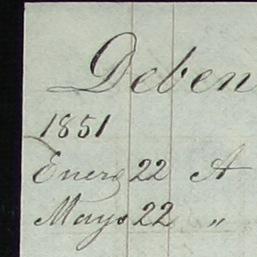 Deben
1851
Enero 22 A
Mayo 22 "